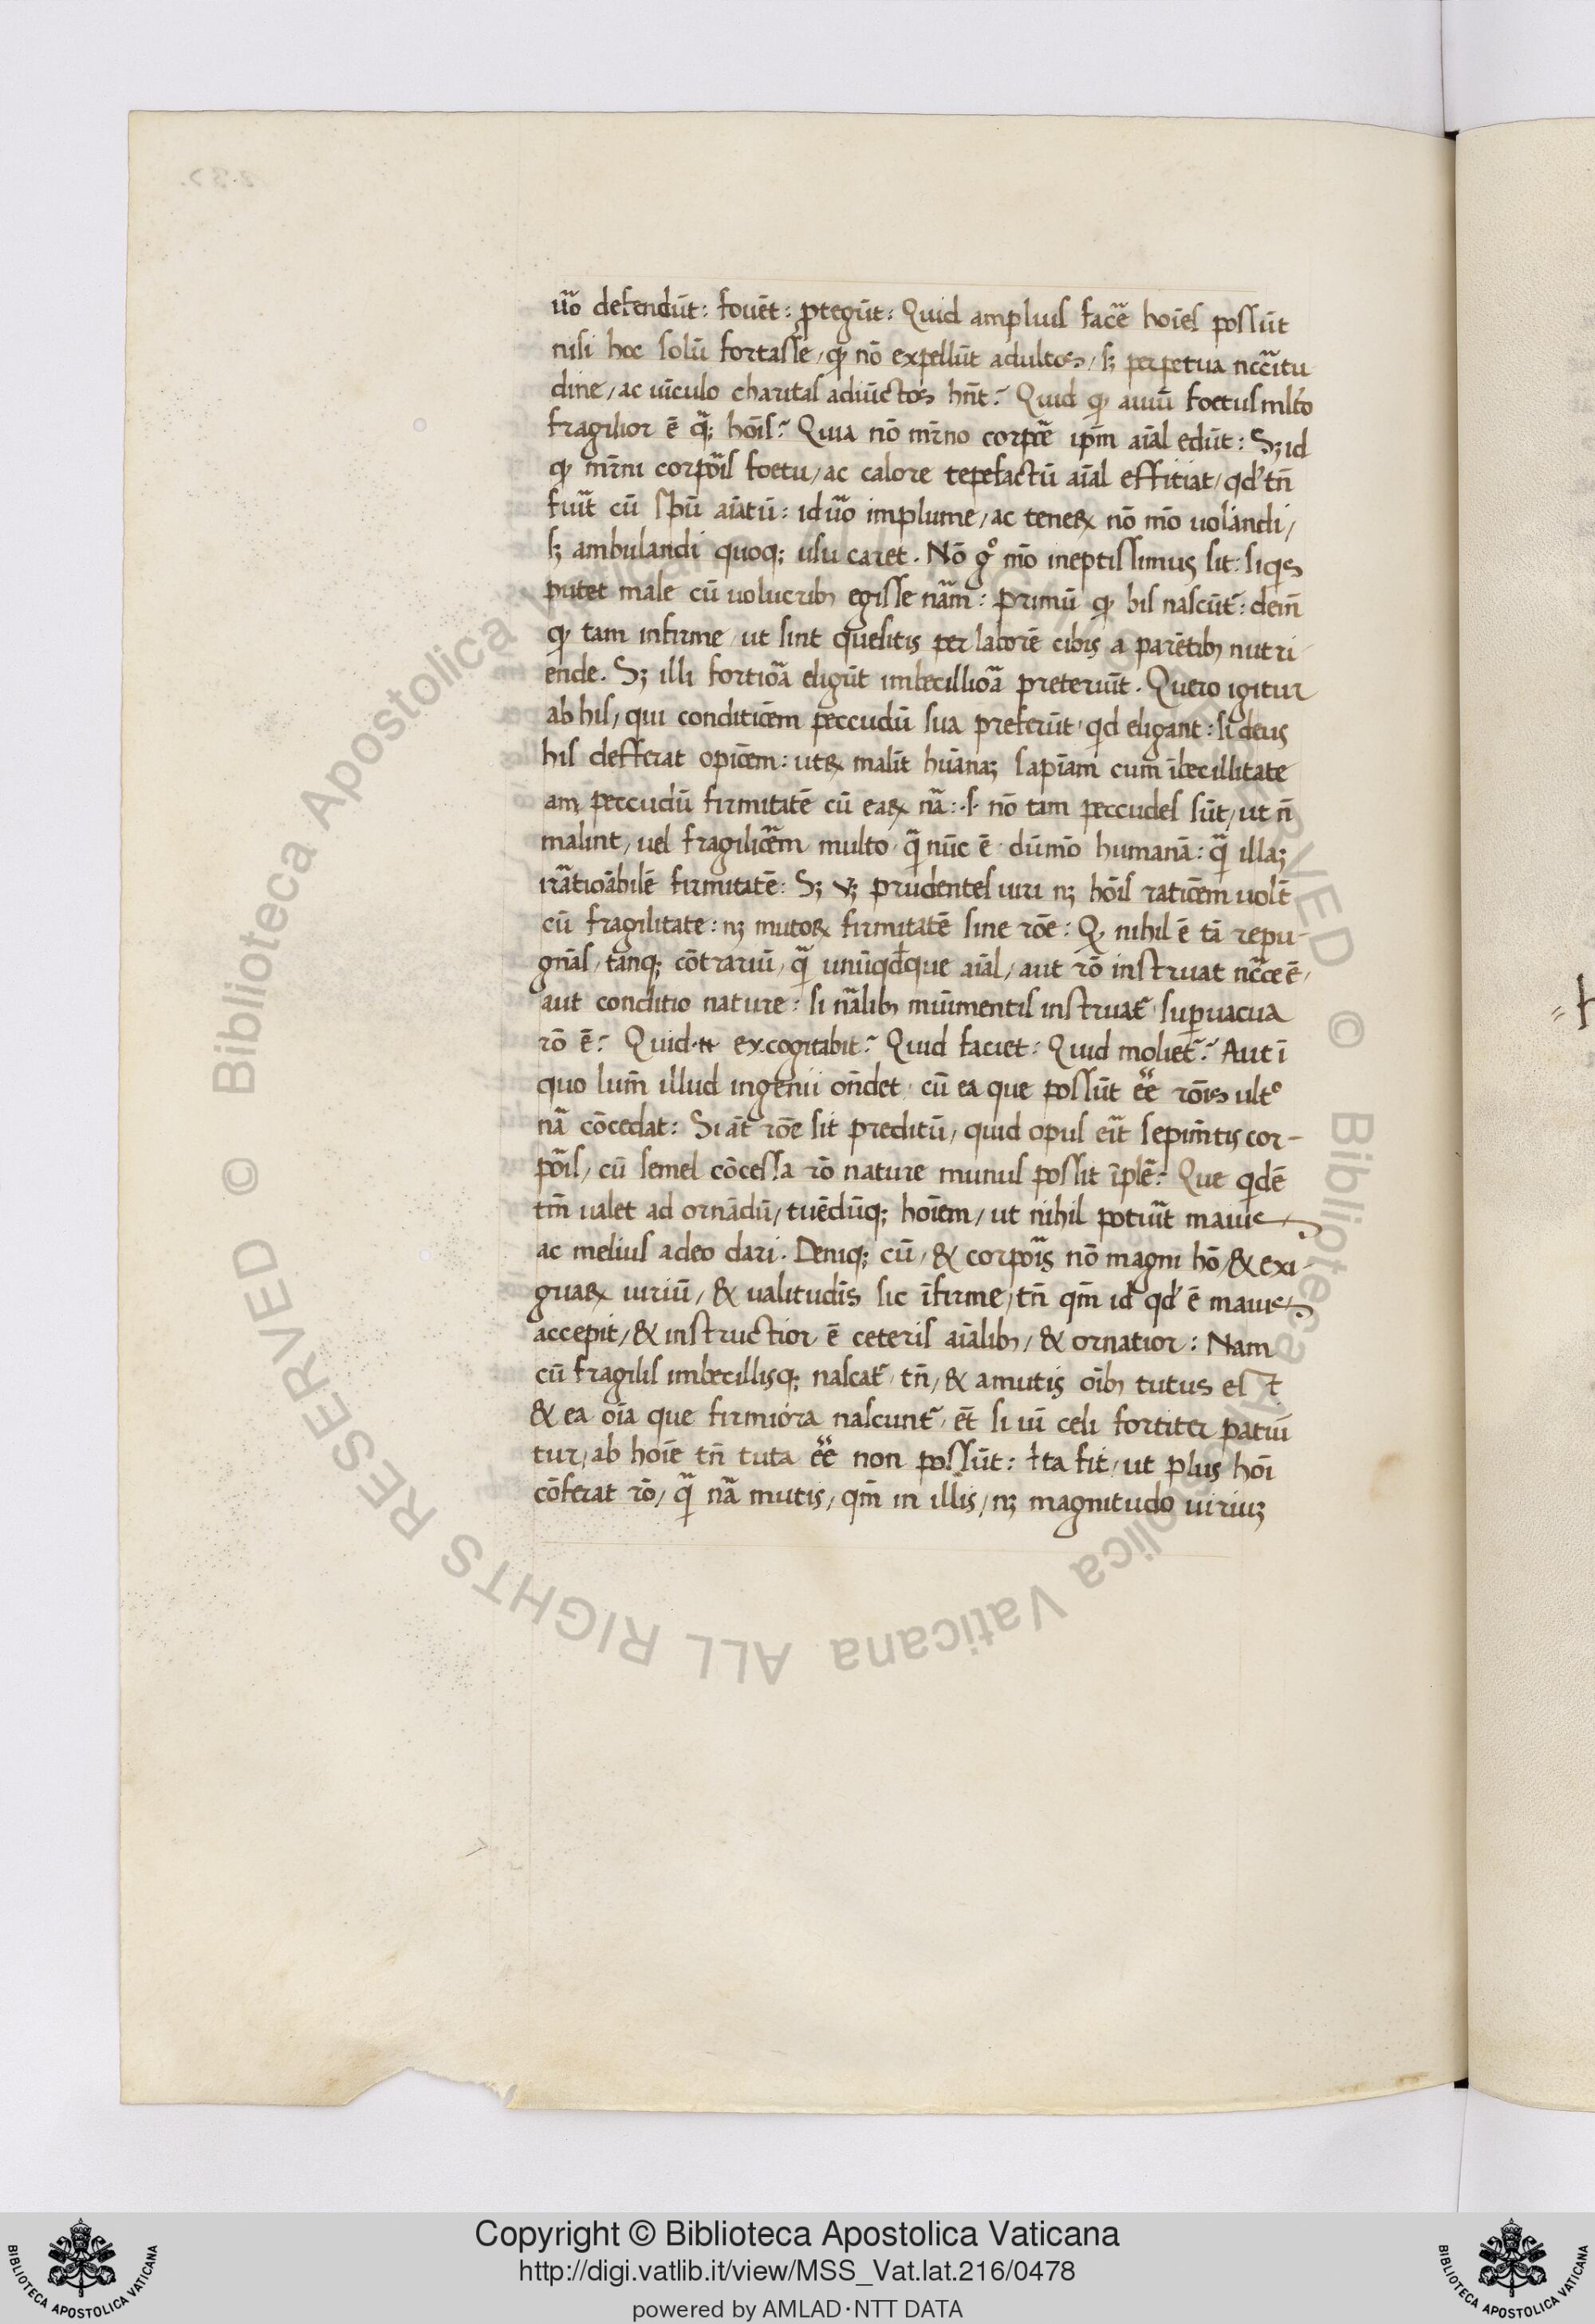 uo̅ defendūt: fouēt: ꝓtegūt: Quid ampliuſ face̅ hoīeſ poſſūt
niſi hoc ſolū fortaſſe, ꝙ nō expellūt adultos, ſꝫ perpetua ncc̅itu
dine, ac uīculo charitaſ adiūctos hn̄t? Quid ꝙ auiū foetuſ ml̅to
fragilior ē q̅ꝫ hōiſ? Quia nō mr̄no corpoē ip̄m aīal edūt: Sꝫ id
ꝙ mr̄ni corpoīſ foetu, ac calore tepefactū aīal effitiat, qd̓ tn̄
fuīt cū ſpū aīatū: id uo̅ implume, ac teneꝝ nō mō uolandi,
ſꝫ ambulandi quoqꝫ uſu caret. Nō gͦ mō ineptiſſimus ſit: ſiqͥs
putet male cū uolucribꝫ egiſſe nām: primū ꝙ biſ naſcūt᷑: dein̄
ꝙ tam infirme ut ſint queſitis per laborē cibis a parētibꝫ nutri
ende. Sꝫ illi fortioā eligūt imbecillioā pretereūt. Quero igitur
ab hiſ, qui conditiōem peccudū ſua preferūt qͥd eligant: ſi deus
hiſ defferat optiōem: utꝝ malīt hūanaꝫ ſapīam cum ībecillitate
an peccudū firmitatē cū eaꝝ nā: .ſ. nō tam peccudeſ ſūt, ut n̄
malint, uel fragiliōem multo q̅ nūc ē dūmō humanā: q̅ illaꝫ
irātioābilē firmitatē: Sꝫ vꝫ prudenteſ uiri nꝫ hōiſ ratiōem uolt̄
cū fragilitate: nꝫ mutoꝝ firmitatē ſine rōe: Ꝙ nihil ē tā repu-
gnāſ, tanqꝫ cōtrariū, q̅ unūqd̓que aīal, aut rō inſtruat ncc̅e ē,
aut conditio nature: ſi nālibꝫ muīmentiſ inſtruat᷑ ſuꝑuacua
rō ē? Quid excogitabit? Quid faciet: Quid moliet᷑? Aut ī
quo lum̄ illud ingenii on̄det cū ea que poſſūt ee̅ rōis ult
nā cōcedat: Si āt rōe ſit preditū, quid opuſ eīt ſepim̄tis cor-
poīſ, cū ſemel cōceſſa rō nature munuſ poſſit īplē? Que qͥdē
tm̄ ualet ad ornādū, tuēdūqꝫ hoīem, ut nihil potuīt maiuſ
ac meliuſ a deo dari. Deniqꝫ cū, & corpoīs nō magni hō, & exi-
guaꝝ uiriū, & ualitudīs ſic īfirme, tn̄ qm̄ id qd̓ ē maiuſ
accepit, & inſtructior ē ceteriſ aīalibꝫ, & ornatior: Nam
cū fragiliſ imbecilliſqꝫ naſcat᷑ tn̄, & a mutis oībꝫ tutus eſt
& ea oīa que firmiora naſcunt᷑ et̄ ſi uī celi fortiter patiū
tur, ab hoīe tn̄ tuta ee̅ non poſſūt: Ita fit, ut plus hōi
cōferat rō, q̅ nā mutis, qm̄ in illis, nꝫ magnitudo uiriuꝫ
Copyright © Biblioteca Apostolica Vaticana
http://digi.vatlib.it/view/MSS_Vat.lat.216/0478
powered by AMLAD·NTT DATA